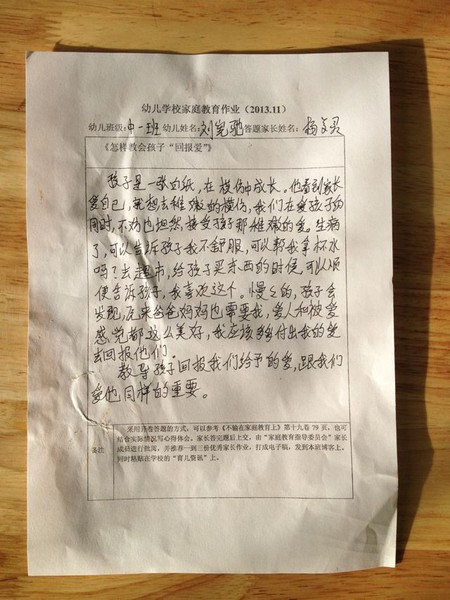 幼儿学校家庭教育作业（2013.11）
幼儿班级：中一班 幼儿姓名：刘宪驰 答题家长姓名：杨文灵
《怎样教会孩子“回报爱”》
孩子是一张白纸，在模仿中成长。他看到家长
爱自己，就想去稚嫩的模仿，我们在爱孩子的
同时，不妨也坦然接受孩子那稚嫩的爱。生病
了，可以告诉孩子我不舒服，可以帮我拿杯水
吗？去超市，给孩子买东西的时候，可以顺
便告诉孩子，我喜欢这个。慢慢的，孩子会
发现，原来爸爸妈妈也需要我，爱人和被爱
感觉都这么美好，我应该多多付出我的爱
去回报他们。
教导孩子回报我们给予的爱，跟我们
爱他同样的重要。
备注
采用开卷答题的方式，可以参考《不输在家庭教育上》第十九卷79页，也可
结合实际情况写心得体会，家长答完题后上交，由“家庭教育指导委员会”家长
成员进行批阅，并推荐一到三份优秀家长作业，打成电子稿，发到本班博客上，
同时粘贴在学校的“育儿资讯”上。